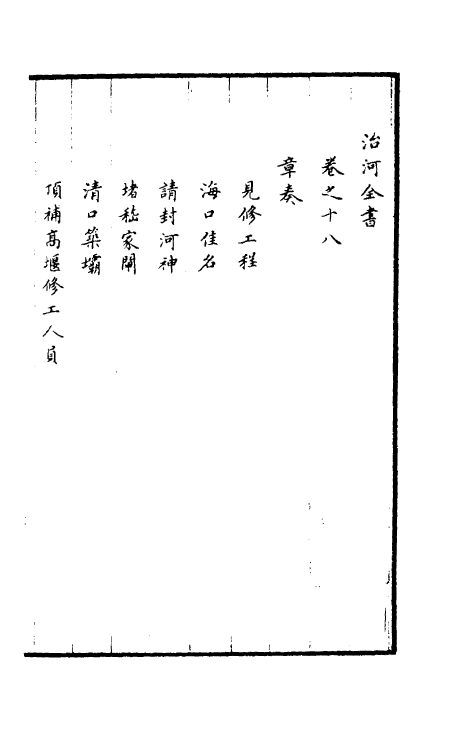 治河全書
卷之十八
章奏
見修工程
海口佳名
請封河神
堵嵇家閘
清口築壩
頂補高堰修工人員